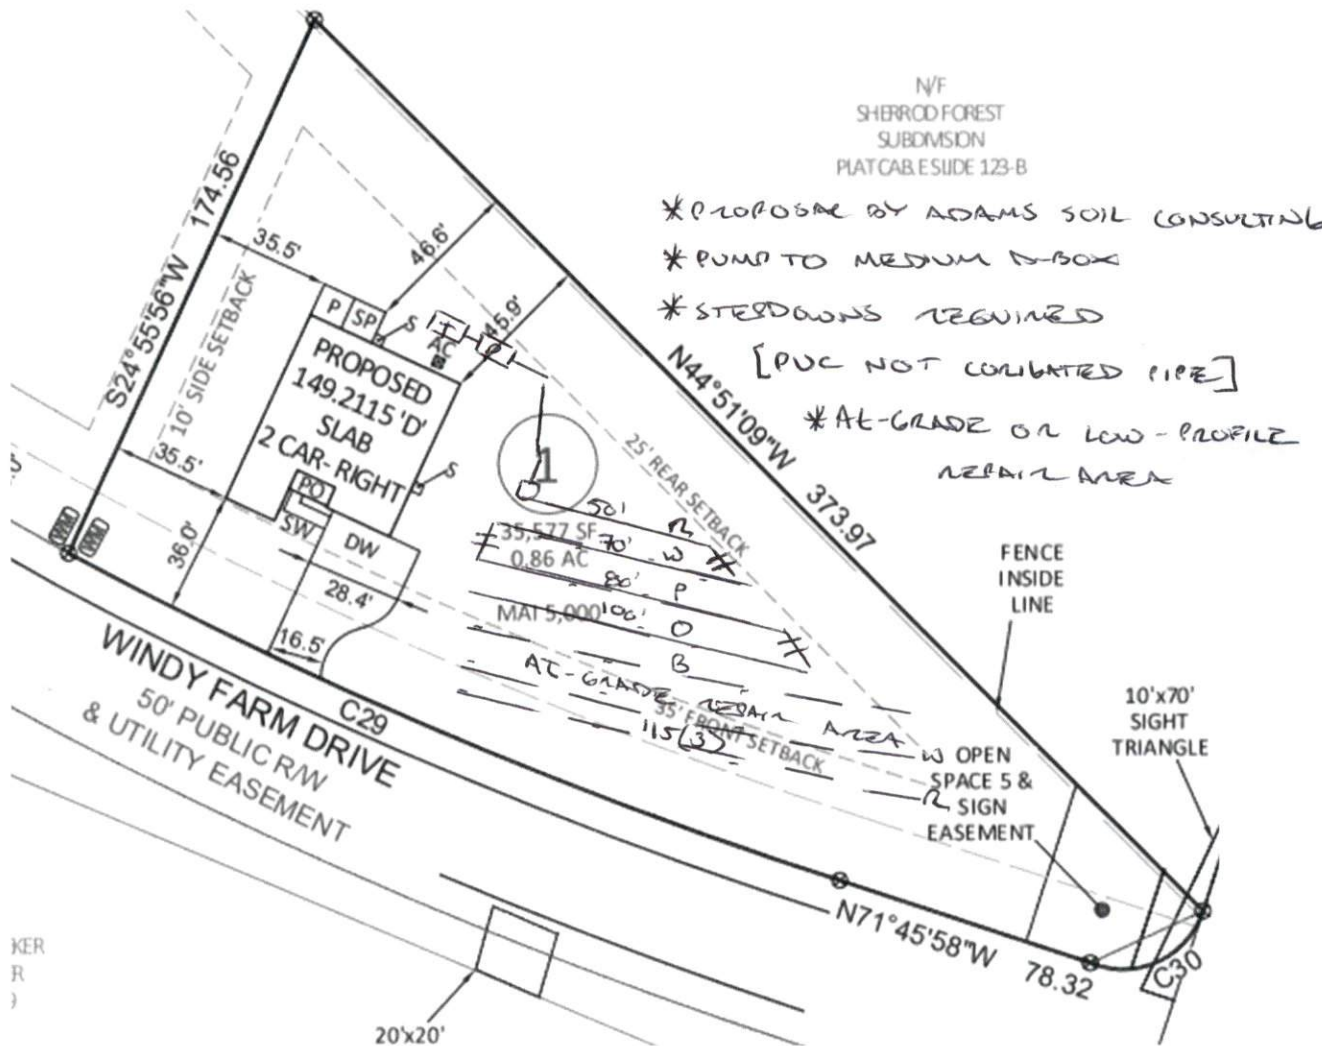 N/F
SHERROD FOREST
SUBDIVISION
PLAT CAB. E SLIDE 123-B
*PROPOSAL BY ADAMS SOIL CONSULTING
*PUMP TO MEDIUM D-BOX
*STEPDOWNS REQUIRED
[PVC NOT CORUGATED PIPE]
*AT-GRADE OR LOW-PROFILE
REPAIR AREA
S24°55'56"W 174.56
10' SIDE SETBACK
35.5'
46.6'
45.9'
P
SP
S
T
P
AC
PROPOSED
149.2115 'D'
SLAB
2 CAR- RIGHT
S
PO
SW
DW
35.5'
36.0'
28.4'
16.5'
WM
WM
1
25' REAR SETBACK
N44°51'09"W 373.97
50' R
35,577 SF
70' W
0.86 AC
80' P
MAI 5,000
100' O
B
AT-GRADE REPAIR AREA
35' FRONT SETBACK
115(3)
W
R
FENCE
INSIDE
LINE
10'x70'
SIGHT
TRIANGLE
OPEN
SPACE 5 &
SIGN
EASEMENT
WINDY FARM DRIVE
50' PUBLIC R/W
& UTILITY EASEMENT
C29
N71°45'58"W 78.32
C30
20'x20'
KER
R
9